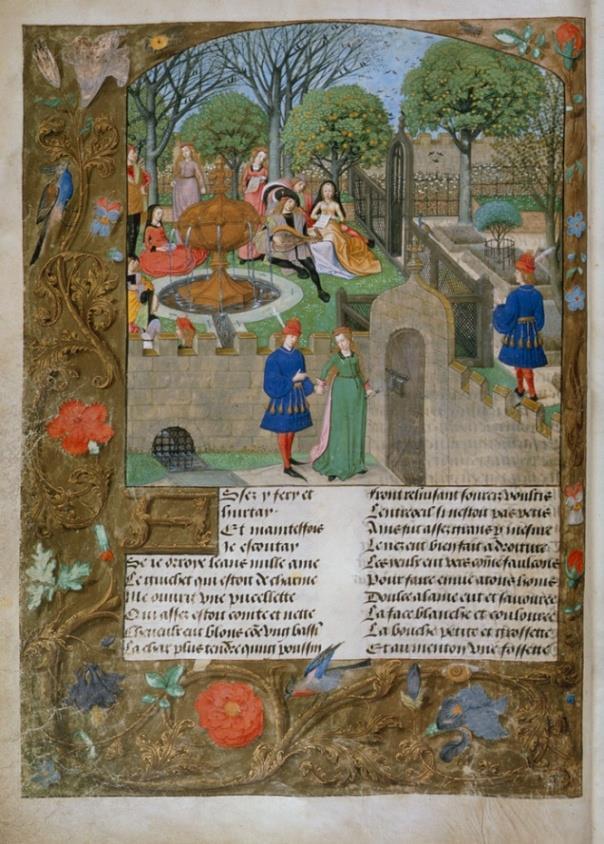 Assez y fery et
hurtay
Et maintesfois
Je escoutay
Se ie orroye leans nulle ame
Le guichet qui estoit de charme
Me ouurit vne pucellette
Qui assez estoit cointe et nette
Cheueulx eut blons cōe vng bassī
La char plus tendre quung poussin
Front reluisant sourcilz voultis
Lentreoeil si nestoit pas petis
Ains fut assez grans p mesure
Le nez eut bien fait a droiture
Les yeulx eut vers cōme faulcons
Pour faire enuie a tous homs
Doulce alaine eut et sauouree
La face blanche et coulouree
La bouche petite et grossette
Et au menton vne fossette